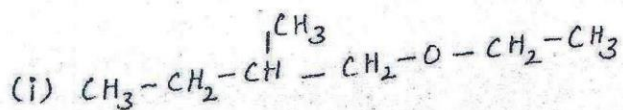 CH₃
(i) CH₃-CH₂-CH-CH₂-O-CH₂-CH₃